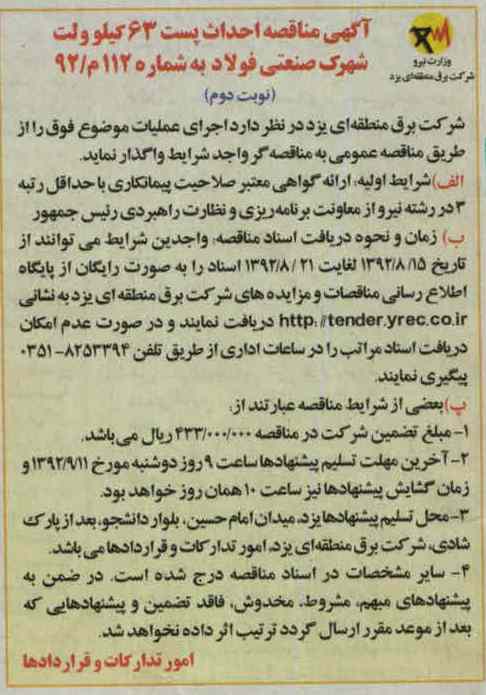 آگهی مناقصه احداث پست ۶۳ کیلو ولت
شهرک صنعتی فولاد به شماره ۱۱۲م/۹۲
(نوبت دوم)
وزارت نیرو
شرکت برق منطقه‌ای یزد
شرکت برق منطقه‌ای یزد در نظر دارد اجرای عملیات موضوع فوق را از
طریق مناقصه عمومی به مناقصه‌گر واجد شرایط واگذار نماید.
الف) شرایط اولیه: ارائه گواهی معتبر صلاحیت پیمانکاری با حداقل رتبه
۳ در رشته نیرو از معاونت برنامه‌ریزی و نظارت راهبردی رئیس جمهور
ب) زمان و نحوه دریافت اسناد مناقصه: واجدین شرایط می توانند از
تاریخ ۱۳۹۲/۸/۱۵ لغایت ۱۳۹۲/۸/۲۱ اسناد را به صورت رایگان از پایگاه
اطلاع رسانی مناقصات و مزایده های شرکت برق منطقه ای یزد به نشانی
http://tender.yrec.co.ir دریافت نمایند و در صورت عدم امکان
دریافت اسناد مراتب را در ساعات اداری از طریق تلفن ۸۲۵۳۳۹۴-۰۳۵۱
پیگیری نمایند.
پ) بعضی از شرایط مناقصه عبارتند از:
۱- مبلغ تضمین شرکت در مناقصه ۴۳۳/۰۰۰/۰۰۰ ریال می‌باشد.
۲- آخرین مهلت تسلیم پیشنهادها ساعت ۹ روز دوشنبه مورخ ۱۳۹۲/۹/۱۱ و
زمان گشایش پیشنهادها نیز ساعت ۱۰ همان روز خواهد بود.
۳- محل تسلیم پیشنهادها یزد، میدان امام حسین، بلوار دانشجو، بعد از پارک
شادی، شرکت برق منطقه‌ای یزد، امور تدارکات و قراردادها می باشد.
۴- سایر مشخصات در اسناد مناقصه درج شده است. در ضمن به
پیشنهادهای مبهم، مشروط، مخدوش، فاقد تضمین و پیشنهادهایی که
بعد از موعد مقرر ارسال گردد ترتیب اثر داده نخواهد شد.
امور تدارکات و قراردادها